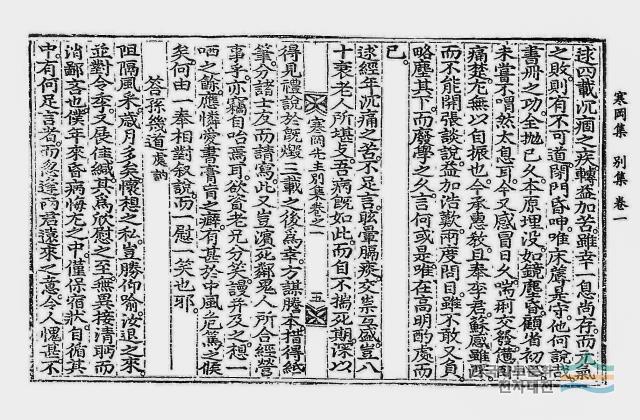 逑四載沉痼之疾轉益加苦雖幸一息尚存而元氣
之敗則有不可道閉門昏呻唯床簀是守他何說哉
書冊之功全抛已久本原埋没如鏡塵昏顧省初
未嘗不喟然太息耳今又感冒日久喘
痛楚尤無以自振也今承惠敎且奉李君蘇感雖深
而不能開張談說益加浩歎兩度問目雖不敢又負
略塵其下而廢學之久言何或是唯在高明酌處而
已
逑經年沉痛之苦不足言眩暈膈痰交祟互盛豈八
十衰老人所堪支吾病旣如此而自不揣死期深以
寒岡先生別集卷之一 五
得見禮說於旣燬三載之後爲幸方謀謄本措得紙
筆分諸士友而請寫此又豈濱死鄰鬼人所合經營
事乎亦竊自咍焉耳欲資老兄分笑謾幷及之想一
哂之餘應憐愛書膏肓之癖有甚於中風危篤之候
矣何由一奉相對叙說而一慰一笑也耶
答孫幾道處訥
阻隔風采歲月多矣懷想之私豈勝仰喻汝退之來
並對令季又展佳緘其爲欣慰之至無異接清眄而
消鄙吝也僕年來昏病悔尤之中僅保宿狀自循其
中有何足言者而忽逢兩君遠來之意令人愧甚不
寒岡集 別集 卷一
전자대전